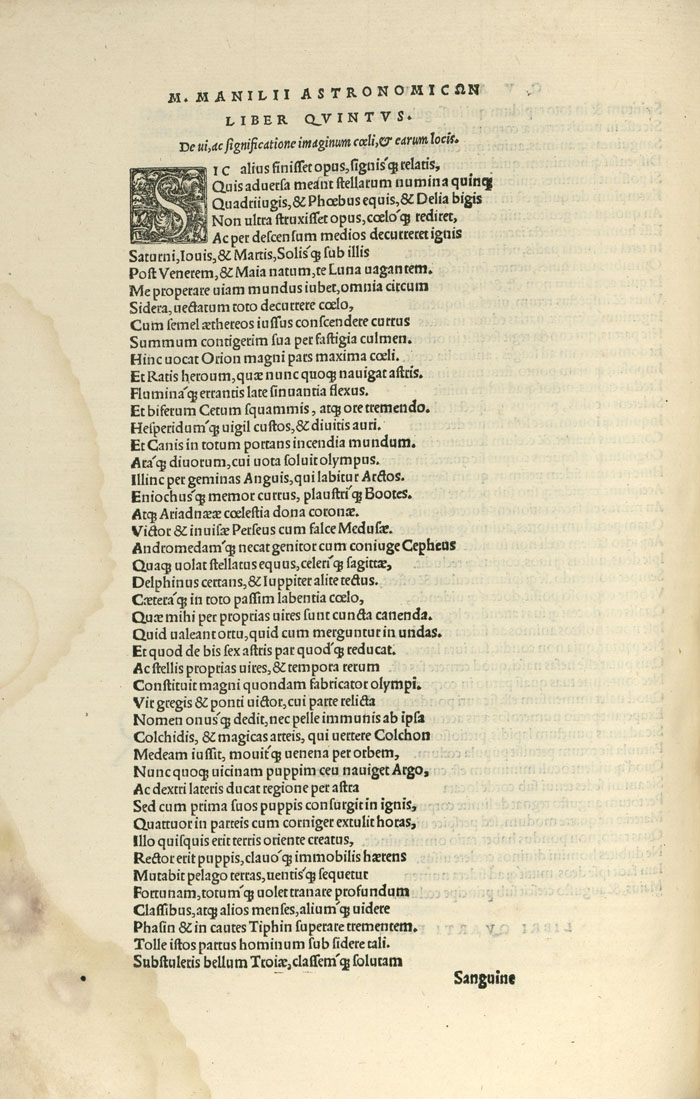 M. MANILII ASTRONOMICΩN
LIBER QVINTVS.
De ui, ac significatione imaginum cœli, & earum locis.
SIC alius finisset opus, signis´q; relatis,
Quis aduersa meant stellarum numina quinq;
Quadriiugis, & Phœbus equis, & Delia bigis
Non ultra struxisset opus, cœlo´q; rediret,
Ac per descensum medios decurreret ignis
Saturni, Iouis, & Martis, Solis´q; sub illis
Post Venerem, & Maia natum, te Luna uagantem.
Me properare uiam mundus iubet, omnia circum
Sidera, uectatum toto decurrere cœlo,
Cum semel æthereos iussus conscendere currus
Summum contigerim sua per fastigia culmen.
Hinc uocat Orion magni pars maxima cœli.
Et Ratis heroum, quæ nunc quoq; nauigat astris.
Flumina´q; errantis late sinuantia flexus.
Et biferum Cetum squammis, atq; ore tremendo.
Hesperidum´q; uigil custos, & diuitis auri.
Et Canis in totum portans incendia mundum.
Ara´q; diuorum, cui uota soluit olympus.
Illinc per geminas Anguis, qui labitur Arctos.
Eniochus´q; memor currus, plaustri´q; Bootes.
Atq; Ariadnææ cœlestia dona coronæ.
Victor & inuisæ Perseus cum falce Medusæ.
Andromedam´q; necat genitor cum coniuge Cepheus
Quaq; uolat stellatus equus, celeri´q; sagittæ,
Delphinus certans, & Iuppiter alite tectus.
Cætera´q; in toto passim labentia cœlo,
Quæ mihi per proprias uires sunt cuncta canenda.
Quid ualeant ortu, quid cum merguntur in undas.
Et quod de bis sex astris par quod´q; reducat.
Ac stellis proprias uires, & tempora rerum
Constituit magni quondam fabricator olympi.
Vir gregis & ponti uictor, cui parte relicta
Nomen onus´q; dedit, nec pelle immunis ab ipsa
Colchidis, & magicas arteis, qui uertere Colchon
Medeam iussit, mouit´q; uenena per orbem,
Nunc quoq; uicinam puppim ceu nauiget Argo,
Ac dextri lateris ducat regione per astra
Sed cum prima suos puppis consurgit in ignis,
Quattuor in parteis cum corniger extulit horas,
Illo quisquis erit terris oriente creatus,
Rector erit puppis, clauo´q; immobilis hærens
Mutabit pelago terras, uentis´q; sequetur
Fortunam, totum´q; uolet tranare profundum
Classibus, atq; alios menses, alium´q; uidere
Phasin & in cautes Tiphin superare trementem.
Tolle istos partus hominum sub sidere tali.
Substuleris bellum Troiæ, classem´q; solutam
Sanguine